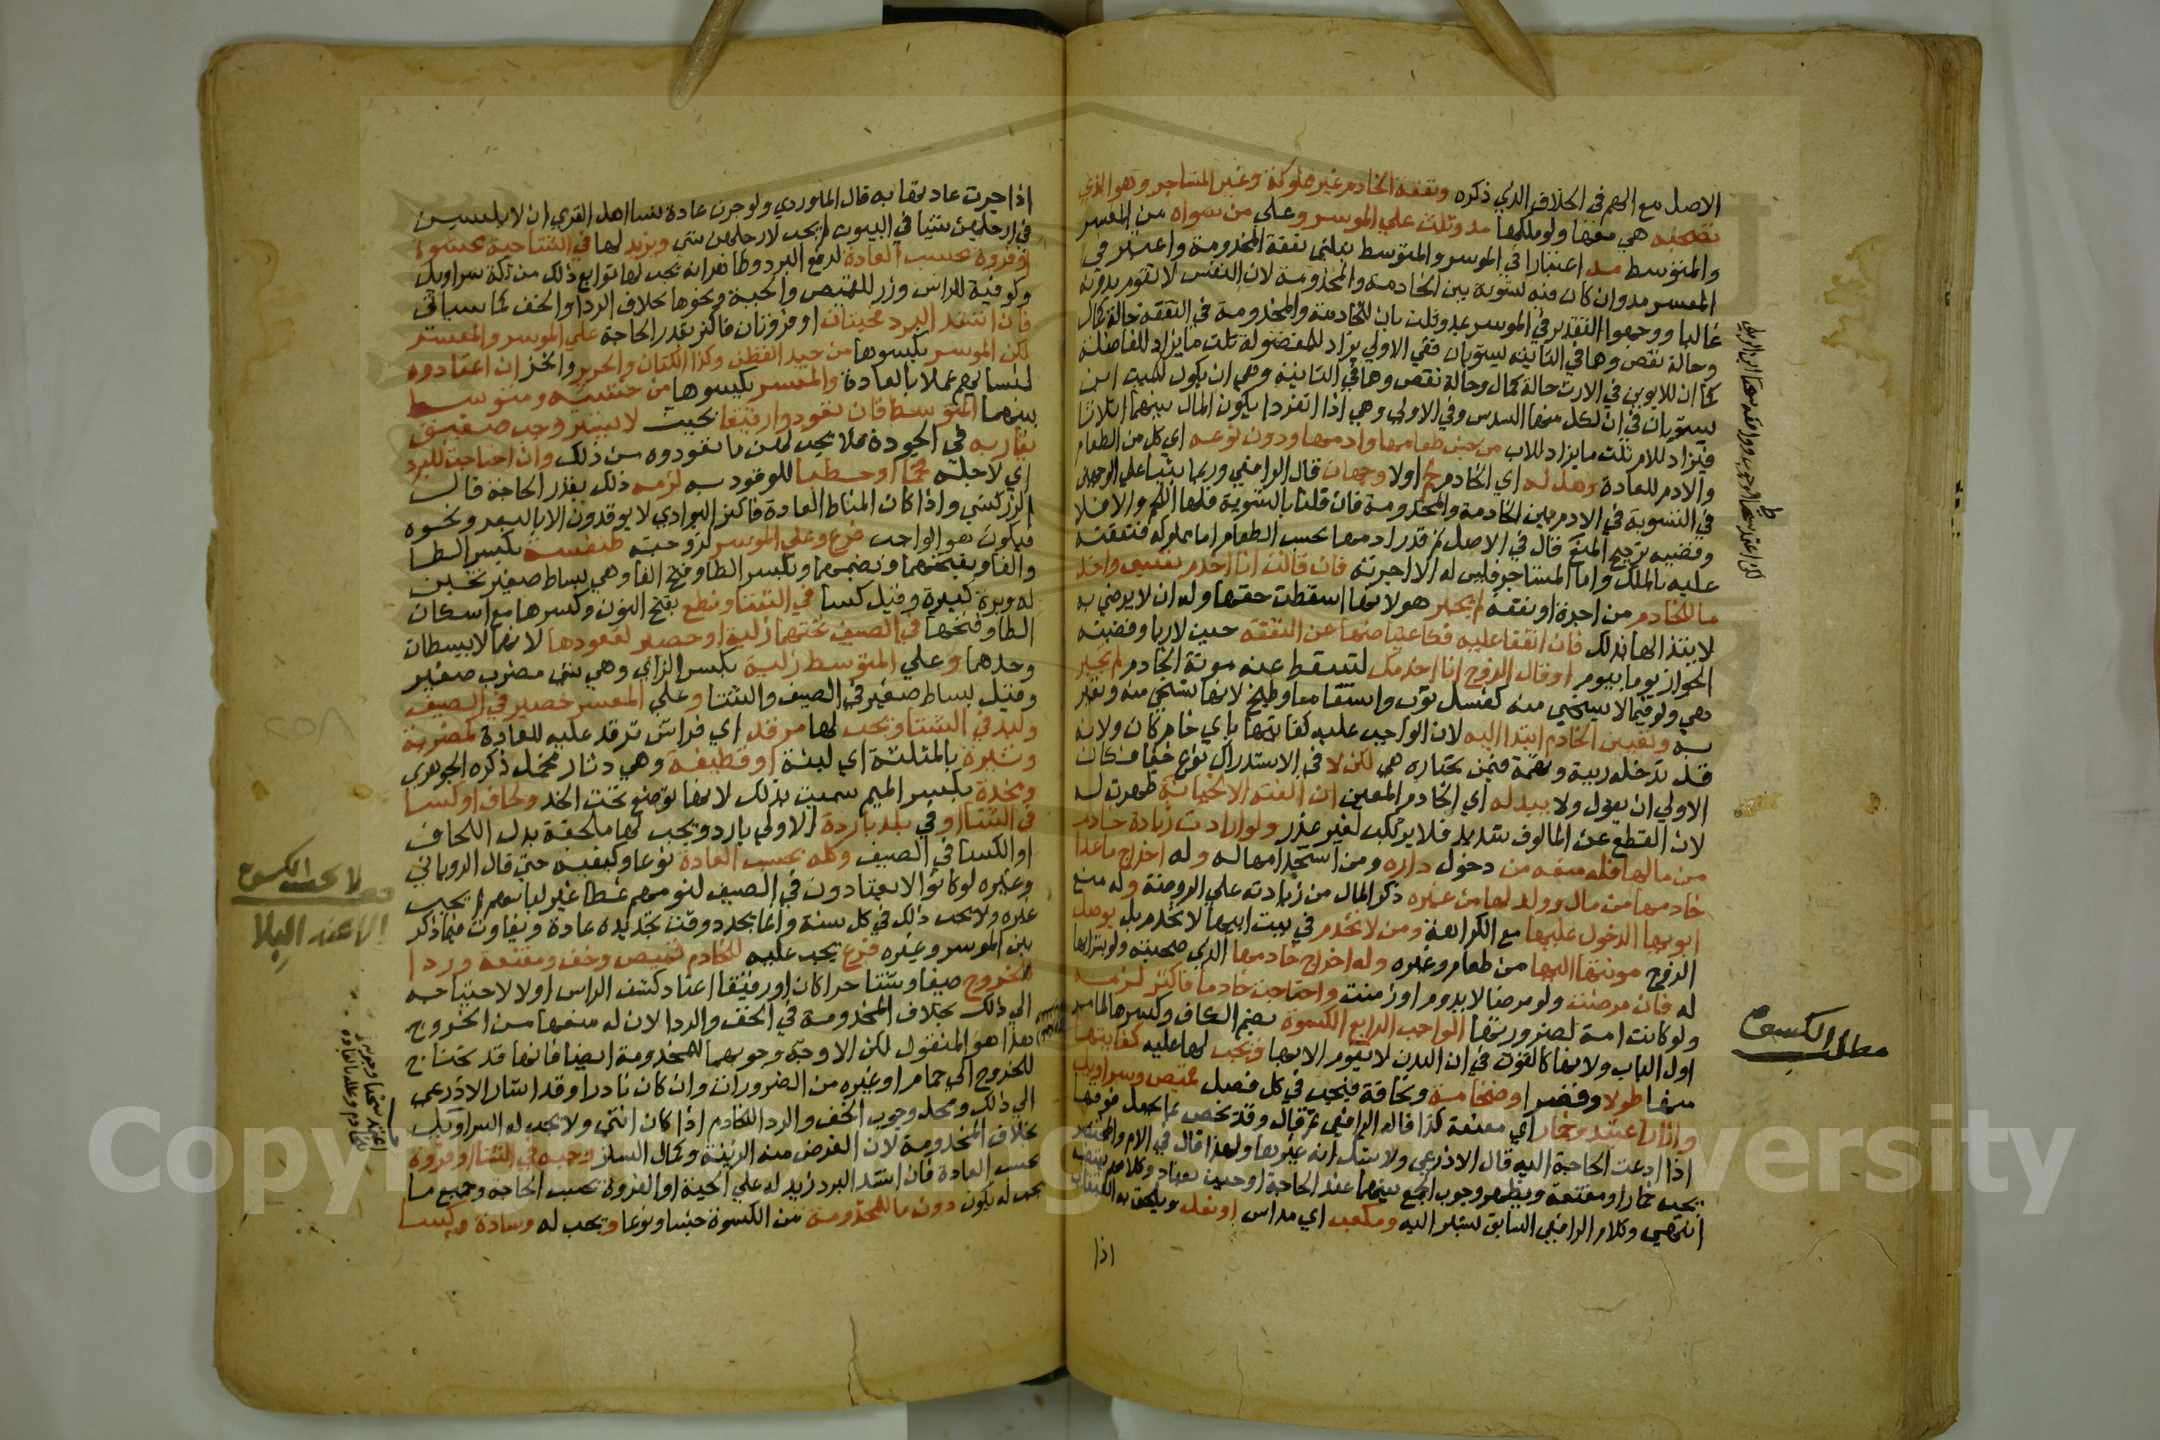 الاصل مع الهم في الخلاف الذي ذكره ونفقة الخادم غير مملوكة وغير المستاجر وهو الذي
تصحبه هي منفقا ولو ملكها مد وثلث علي الموسر وعلي من سواه من المعسر
والمتوسط مد اعتبارا في الموسر والمتوسط بثلثي نفقة المخدومة واعتبر في
المعسر مد وان كان فيه تسوية بين الخادمة والمخدومة لان النفس لا تقوم بدونه
غالبا ووجهوا التقدير في الموسر بمد وثلث بان للخادمة والمخدومة في النفقة حالة كمال
وحالة نقص وهما في الثانية يستويان ففي الاولي يزاد للمفضولة ثلث ما يزاد للفاضلة
كما ان للابوين في الارث حالة كمال وحالة نقص وهما في الثانية وهي ان يكون للميت ابن
يستويان في ان لكل منهما السدس وفي الاولي وهي اذا انفردا يكون المال بينهما اثلاثا
فيزاد للام ثلث ما يزاد للاب من جنس طعامها وادمها ودون نوعه اي كل من الطعام
والادم للعادة وهل له اي الخادم لحم اولا وجهان قال الرافعي وربما بنيا علي الوجهين
في التسوية في الادم بين الخادمة والمخدومة فان قلنا بالتسوية فلها اللحم والا فلا
وقضيته ترجيح المنع قال في الاصل ثم قدر ادمها بحسب الطعام اما مملوكه فنفقته
عليه بالملك واما المستاجر فليس له الا اجرته فان قالت انا اخدم نفسي واخذ
ما للخادم من اجرة او نفقة لم يجبر هو لانها اسقطت حقها وله ان لا يرضي به
لابتذالها بذلك فان اتفقا عليه فكاعتياضها عن النفقة حيث لا ربا وقضيته
الجواز يوما بيوم او قال الزوج انا اخدمك لتسقط عنه مونة الخادم لم تجبر
هي ولو فيما لا يستحيي منه كغسل ثوب واستقا ماء وطبخ لانها تستحيي منه وتعير
به وتعيين الخادم ابتدا اليه لان الواجب عليه كفايتها باي خادم كان ولانه
قد تدخله ريبة وتهمة فيمن تختاره هي لكن لا في الاستدراك نوع خفا فكان
الاولي ان يقول ولا يبدله اي الخادم المعين ان الفته الا لخيانة ظهرت له
لان القطع عن المالوف شديد فلا يرتكب لغير عذر ولو ارادت زيادة خادم
من مالها فله منعه من دخول داره ومن استخدامها له وله اخراج ما عدا
خادمها من مال وولد لها من غيره ذكر المال من زيادته علي الروضة وله منع
ابويها الدخول عليها مع الكراهة ومن لا تخدم في بيت ابيها لا تخدم بل يوصل
الزوج مونتها اليها من طعام وغيره وله اخراج خادمها الذي صحبته
له فان مرضت ولو مرضا لا يدوم او زمنت واحتاجت خادما فاكثر لزمه
ولو كانت امة لضرورتها الواجب الرابع الكسوة بضم الكاف وكسرها لما مر
اول الباب ولانها كالقوت في ان البدن لا يقوم الا بها فيجب لها عليه كفايتها
منها طولا وقصرا وضخامة ونحافة فيجب في كل فصل قميص وسراويل
وازار اعتيد وخمار اي مقنعة كذا قاله الرافعي ثم قال وقد يخص بما يجعل فوقها
اذا دعت الحاجة اليه قال الاذرعي ولا شك انه غيرها ولهذا قال في الام والمختصر
يجب خمار او مقنعة ويظهر وجوب الجمع بينهما عند الحاجة او حيث يعتاد
انتهي وكلام الرافعي السابق يشير اليه ومكعب اي مداس او نعل ويلحق به القبقاب
اذا
مطلب الكسوة
اذا جرت عادتها به قال الماوردي ولو جرت عادة نسا اهل القري ان لا يلبسن
في ارجلهن شيئا في البيوت لم يجب لارجلهن شي ويزيد لها في الشتا جبة محشوة
او فروة بحسب العادة لدفع البرد وظاهر انه يجب لها توابع ذلك من تكة سراويل
وكوفية للراس وزر للقميص والجبة ونحوها بخلاف الردا والخف لما سياتي
فان اشتد البرد فجبتان او فروتان فاكثر بقدر الحاجة علي الموسر والمعسر
لكن الموسر يكسوها من جيد القطن وكذا الكتان والحرير والخز ان اعتادوه
لنسائهم عملا بالعادة والمعسر يكسوها من خشنه ومتوسط
بينهما المتوسط فان تعودوا رقيقا بحيث لا يستر وجب صفيق
يقاربه في الجودة فلا يجب لهن ما تعودوه من ذلك وان احتاجت للبرد
اي لاجله فحما او حطبا للوقود به لزمه ذلك بقدر الحاجة قال
الزركشي واذا كان المناط العادة فاكثر البوادي لا يوقدون الا بالبعر ونحوه
فيكون هو الواجب فرع وعلي الموسر لزوجته طنفسة بكسر الطا
والفا وبفتحهما وبضمهما وبكسر الطا وفتح الفا وهي بساط صغير ثخين
له وبرة كبيرة وقيل كسا في الشتا ونطع بفتح النون وكسرها مع اسكان
الطا وفتحها في الصيف تحتهما زلية او حصير لقعودها لانهما لا يبسطان
وحدهما وعلي المتوسط زلية بكسر الزاي وهي شي مضرب صغير
وقيل بساط صغير في الصيف والشتا وعلي المعسر حصير في الصيف
ولبد في الشتا ويجب لها مرقد اي فراش ترقد عليه للعادة كمضربة
وثيرة بالمثلثة اي لينة او قطيفة وهي دثار مخمل ذكره الجوهري
ومخدة بكسر الميم سميت بذلك لانها توضع تحت الخد ولحاف او كسا
في الشتا او في بلد باردة الاولي بارد ويجب لها ملحفة بدل اللحاف
او الكسا في الصيف وكله بحسب العادة نوعا وكيفية حتي قال الروياني
وغيره لو كانوا لا يعتادون في الصيف لنومهم غطا غير لباسهم لم يجب
غيره ولا يجب ذلك في كل سنة وانما يجدد وقت تجديده عادة ويفاوت فيما ذكر
بين الموسر وغيره فرع يجب عليه للخادم قميص وخف ومقنعة وردا
للخروج صيفا وشتا حرا كان او رقيقا اعتاد كشف الراس او لا لاحتياجه
الي ذلك بخلاف المخدومة في الخف والردا لان له منعها من الخروج
هذا هو المنقول لكن الاوجه وجوبهما للمخدومة ايضا فانها قد تحتاج
للخروج الي حمام او غيره من الضرورات وان كان نادرا وقد اشار الاذرعي
الي ذلك ومحل وجوب الخف والردا للخادم اذا كان انثي ولا يجب له السراويل
بخلاف المخدومة لان الغرض منه الزينة وكمال الستر وجبة في الشتا او فروة
بحسب العادة فان اشتد البرد زيد له علي الجبة او الفروة بحسب الحاجة وجميع ما
يجب له يكون دون ما للمخدومة من الكسوة جنسا ونوعا ويجب له وسادة وكسا
لا يجب الكسوة
الا عند البلا